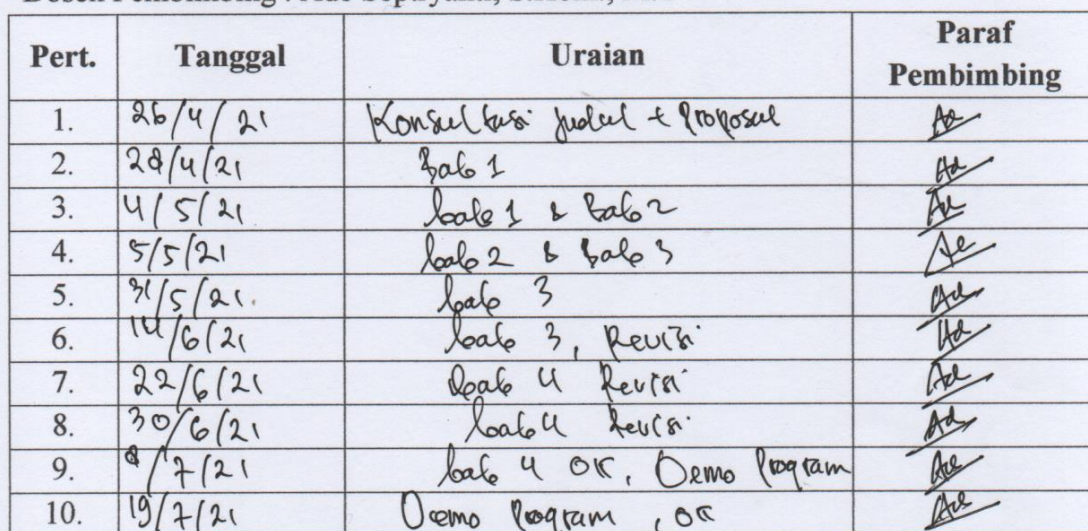 Pert. Tanggal Uraian Paraf Pembimbing
1. 26/4/21 Konsultasi Judul + Proposal
2. 28/4/21 Bab 1
3. 4/5/21 bab 1 & Bab 2
4. 5/5/21 bab 2 & Bab 3
5. 31/5/21 bab 3
6. 14/6/21 bab 3, Revisi
7. 22/6/21 bab 4 Revisi
8. 30/6/21 bab 4 Revisi
9. /7/21 bab 4 OK, Demo Program
10. 19/7/21 Demo Program, OK